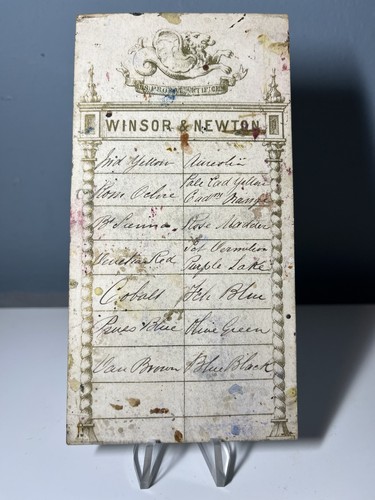 WINSOR & NEWTON
Ind Yellow
Aureolin
Rom Ochre
Pale Cad Yellow
Cadm Orange
Bt Sienna
Rose Madder
Venetian Red
Vermilion
Purple Lake
Cobalt
Fch Blue
Blue
Olive Green
Van Brown
Blue Black